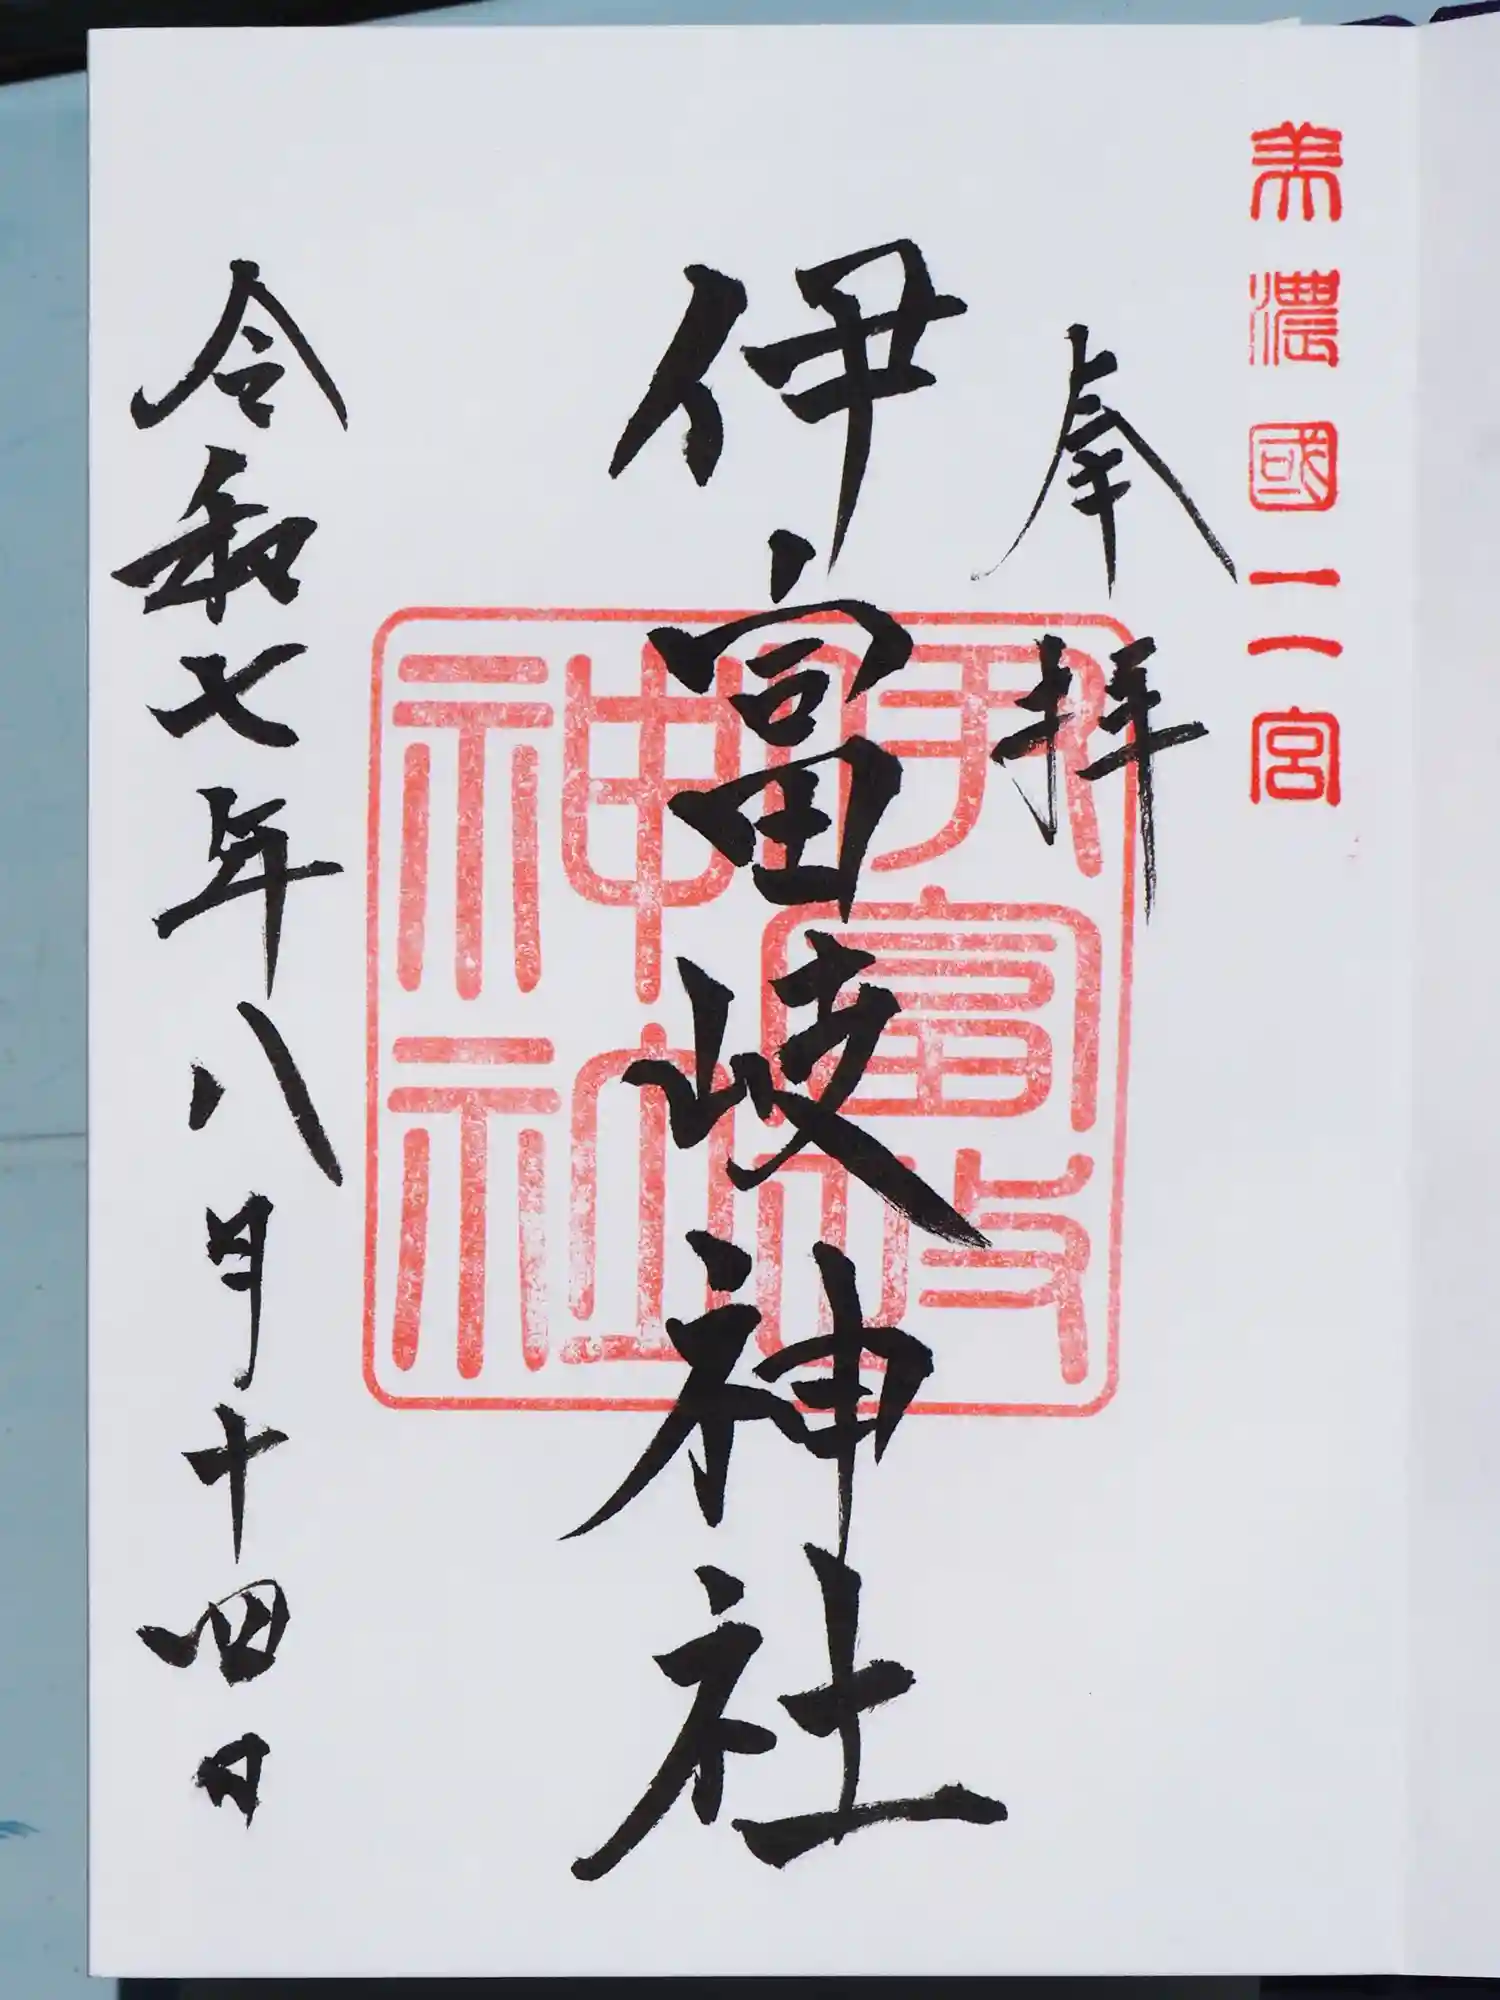 美濃國二宮
奉拝
伊富岐神社
伊富岐
神社
令和七年八月十四日